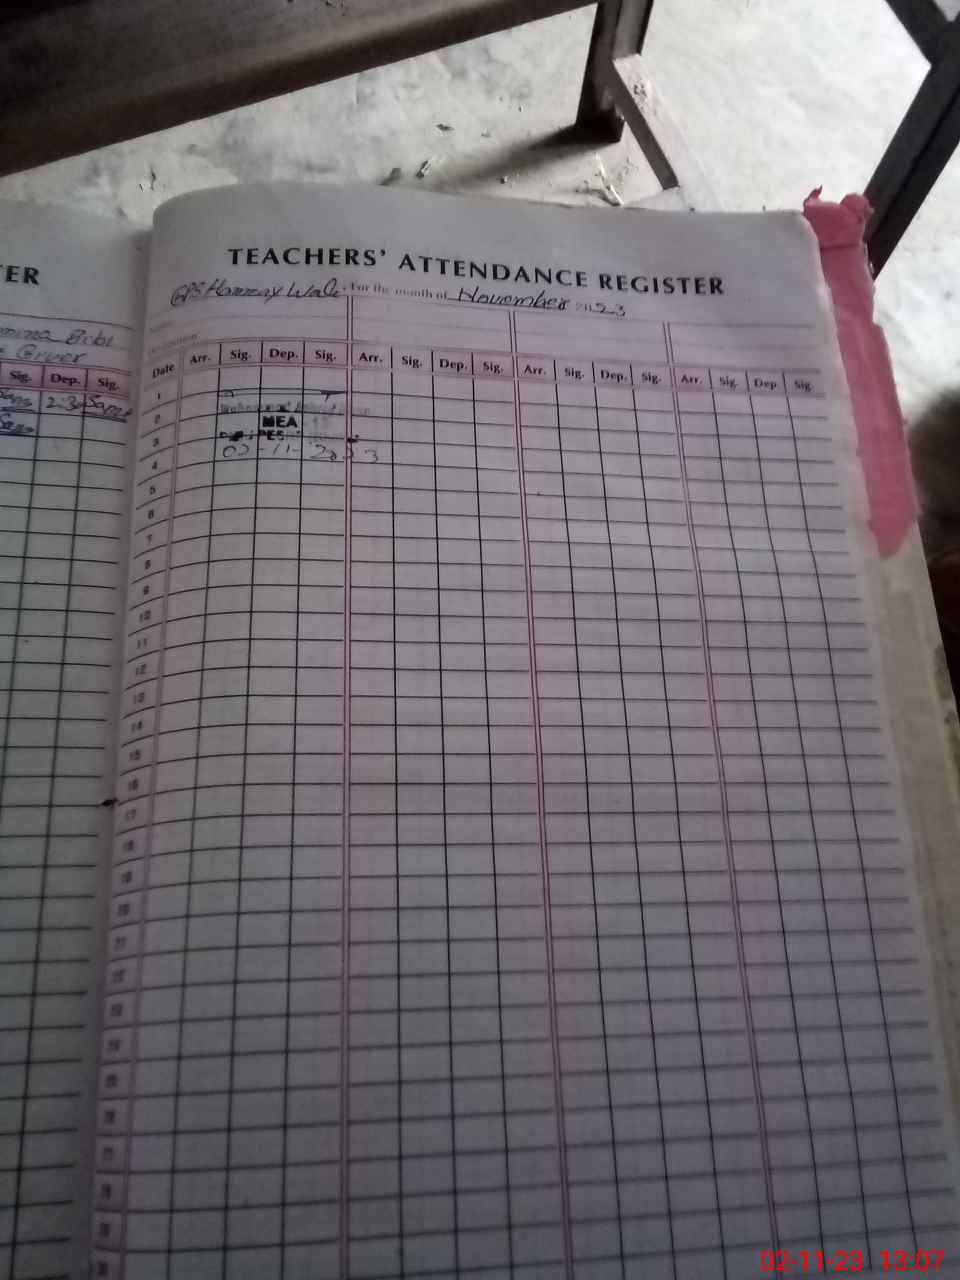 TER
Sig. Dep. Sig.
2:30
TEACHERS' ATTENDANCE REGISTER
GPS For the month of November 2023
Date Arr. Sig. Dep. Sig. Arr. Sig. Dep. Sig. Arr. Sig. Dep. Sig. Arr. Sig. Dep. Sig.
1
2
MEA
3
02-11-2023
4
5
6
7
8
9
10
11
12
13
14
15
16
17
18
19
20
21
22
23
24
25
26
27
28
29
30
02-11-23 13:07